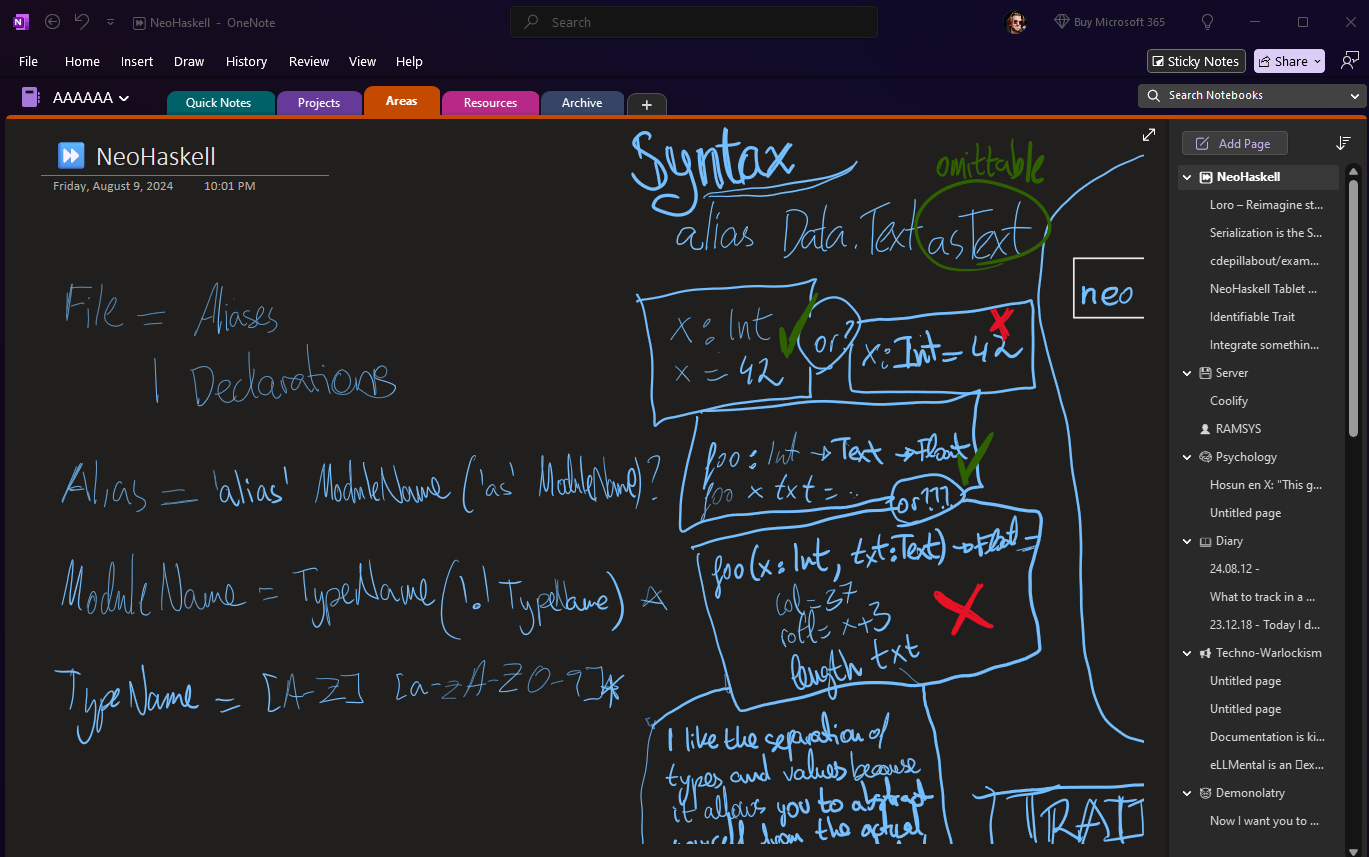 NeoHaskell - OneNote
Search
Buy Microsoft 365
File Home Insert Draw History Review View Help
Sticky Notes
Share
AAAAAA
Quick Notes
Projects
Areas
Resources
Archive
+
Search Notebooks
NeoHaskell
Friday, August 9, 2024 10:01 PM
File = Aliases
| Declarations
Alias = 'alias' ModuleName ('as' ModuleName)?
ModuleName = TypeName ('.' TypeName) *
TypeName = [A-Z] [a-zA-Z0-9]*
Syntax
omittable
alias Data.Text as Text
x : Int
x = 42
or?
x : Int = 42
foo : Int → Text → Float
foo x txt = ..
or???
foo(x: Int, txt: Text) → Float =
col = 37
coll = x+3
length txt
I like the separation of
types and values because
it allows you to abstract
yourself from the actual
neo
TRAI
Add Page
NeoHaskell
Loro – Reimagine st...
Serialization is the S...
cdepillabout/exam...
NeoHaskell Tablet ...
Identifiable Trait
Integrate somethin...
Server
Coolify
RAMSYS
Psychology
Hosun en X: "This g...
Untitled page
Diary
24.08.12 -
What to track in a ...
23.12.18 - Today I d...
Techno-Warlockism
Untitled page
Untitled page
Documentation is ki...
eLLMental is an ▯ex...
Demonolatry
Now I want you to ...